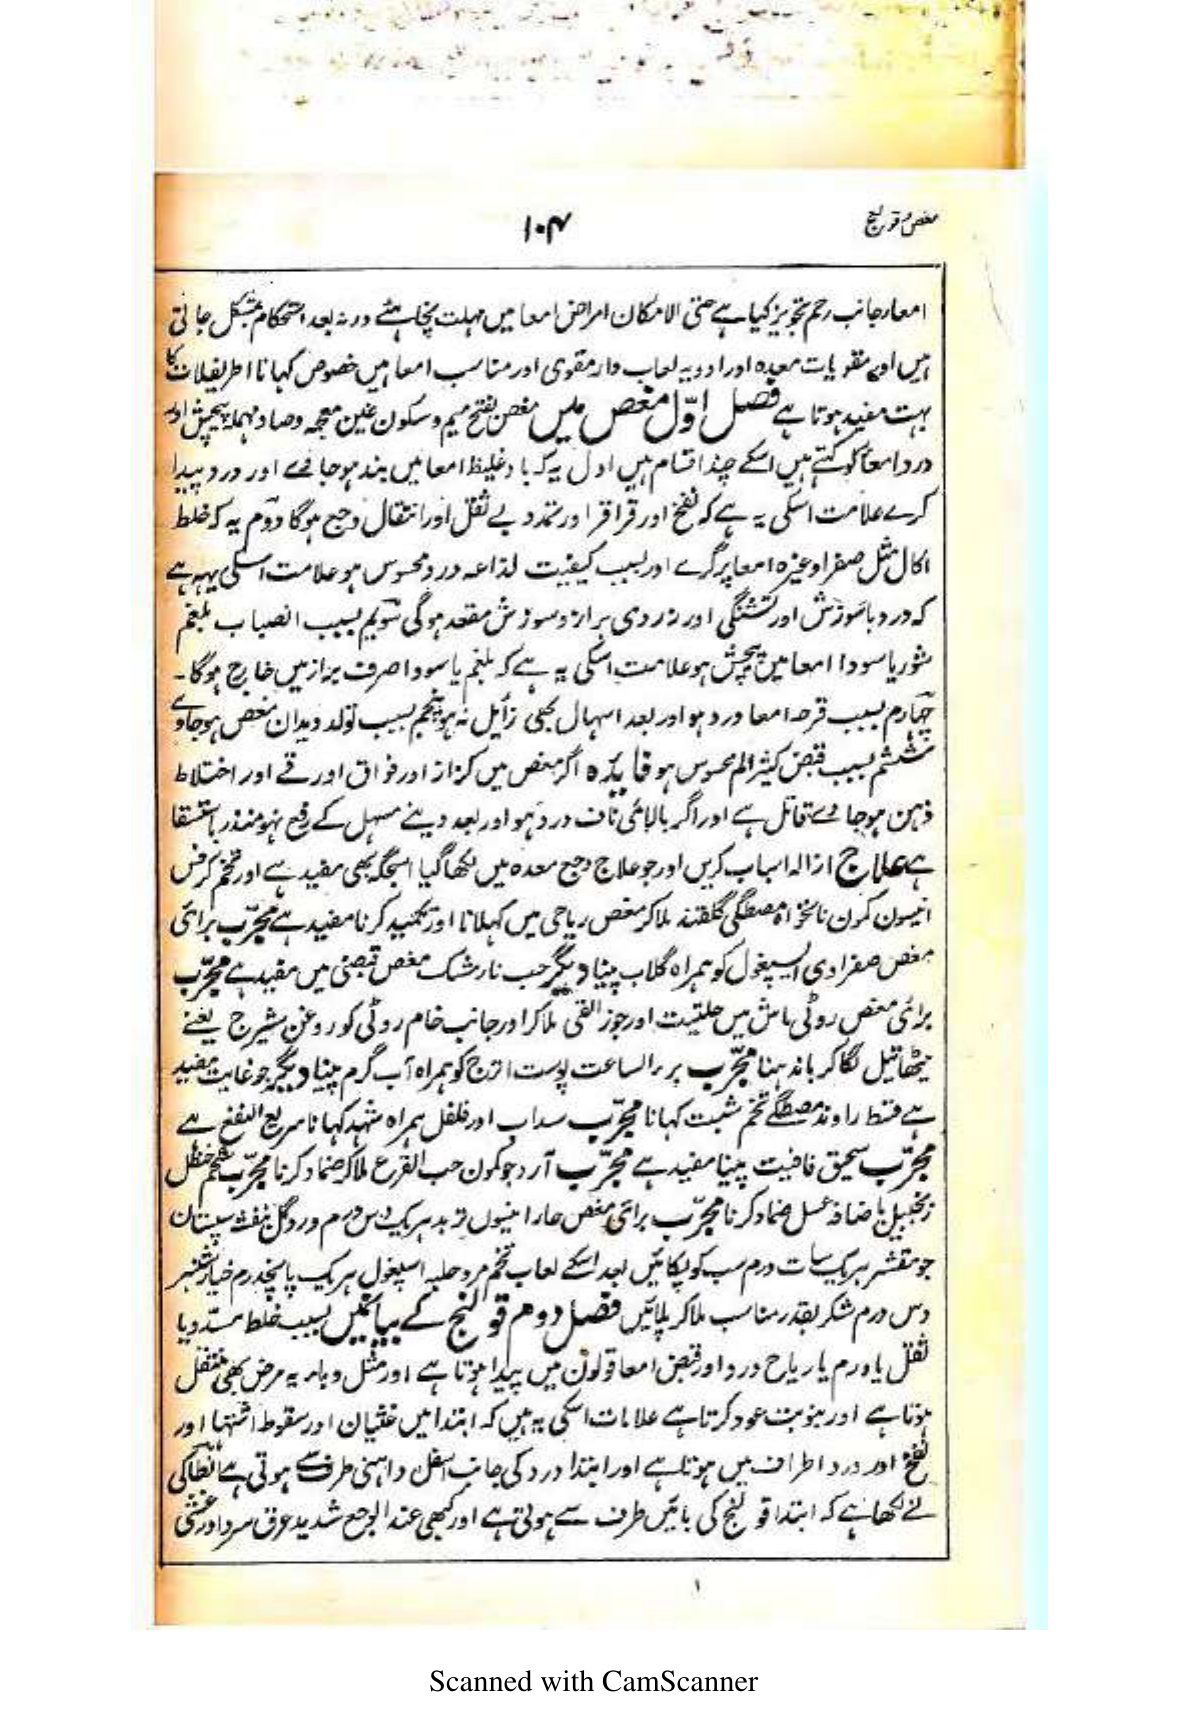 مغص و قولنج
۱۰۴
امعا رجانب رحم تجویز کیا ہے حتی الامکان امراض امعا میں مہلت نچاہئے ورنہ بعد استحکام بمشکل جاتی
ہیں اور مقویات معدہ اور ادویہ لعاب دار مقوی اور مناسب امعا ہیں خصوص کہانا اطریفلات کا
بہت مفید ہوتا ہے فصل اوّل مغص میں مغص بفتح میم و سکون غین معجمہ و صاد مہملہ پیچش اور
درد امعا کو کہتے ہیں اسکے چند اقسام ہیں اول یہ کہ باد غلیظ امعا میں بند ہو جاوے اور درد پیدا
کرے علامت اسکی یہ ہے کہ نفخ اور قراقر اور تمدد بے ثقل اور انتقال وجع ہوگا دوم یہ کہ خلط
اکال مثل صفرا وغیرہ امعا پر گرے اور بسبب کیفیت لذاعہ درد محسوس ہو علامت اسکی یہہ ہے
کہ درد باسوزش اور تشنگی اور زردی براز و سوزش مقعد ہوگی سویم بسبب انصباب بلغم
شور یا سودا امعا میں پیچش ہو علامت اسکی یہ ہے کہ بلغم یا سودا صرف براز میں خارج ہوگا۔
چہارم بسبب قرحہ امعا درد ہو اور بعد اسہال بھی زائل نہ ہو پنجم بسبب تولد دیدان مغص ہو جاوے
ششم بسبب قبض کثیر الم محسوس ہو فایدہ اگر مغص میں کزاز اور فواق اور قے اور اختلاط
ذہن ہو جاوے قاتل ہے اور اگر بالائی ناف درد ہو اور بعد دینے مسہل کے رفع نہو منذر باستسقا
ہے علاج ازالہ اسباب کریں اور جو علاج وجع معدہ میں لکھا گیا اسجگہ بھی مفید ہے اور تخم کرفس
انیسون کمون نانخواہ مصطگی گلقند ملا کر مغص ریاحی میں کہلانا اور تکمید کرنا مفید ہے مجرّب برای
مغص صفراوی اسپغول کو ہمراہ گلاب پینا دیگر حب نارمشک مغص قبضی میں مفید ہے مجرّب
برای مغص روٹی ماش میں حلتیت اور جوز القی ملا کر اور جانب خام روٹی کو روغن شیرج یعنے
میٹھا تیل لگا کر باندہنا مجرّب برء الساعت پوست اترج کو ہمراہ آب گرم پینا دیگر جو غایت مفید
ہے فقط راوند مصطگے تخم شبت کہانا مجرّب سداب اور فلفل ہمراہ شہد کہانا سریع النفع ہے
مجرّب سحیق غافیت پینا مفید ہے مجرّب آرد جو کمون حب القرع ملا کر ضماد کرنا مجرّب شحم حنظل
زنجبیل باضافہ عسل ضماد کرنا مجرّب برای مغص حار انیسوں تربد ہر یک دس درم ورد گل بنفشہ سپستان
جو مقشر ہر یک سات درم سب کو پکائیں بعد اسکے لعاب تخم مرو حلبہ اسپغول ہر یک پانچدرم خیارشنبر
دس درم شکر بقدر مناسب ملا کر پلائیں فصل دوم قولنج کے بیانمیں بسبب خلط سدّ و یا
ثقل یا ورم یا ریاح درد اور قبض امعا قولون میں پیدا ہوتا ہے اور مثل وباء یہ مرض بھی منتقل
ہوتا ہے اور بنوبت عود کرتا ہے علامات اسکی یہ ہیں کہ ابتدا میں غثیان اور سقوط اشتہا اور
نفخ اور درد اطراف میں ہوتا ہے اور ابتدا درد کی جانب اسفل داہنی طرف سے ہوتی ہے انطاکی
نے لکھا ہے کہ ابتدا قولنج کی بائیں طرف سے ہوتی ہے اور کبھی عند الوجع شدید عرق سرد اور غشی
۱
Scanned with CamScanner